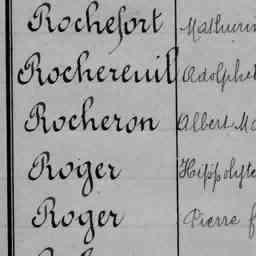 Rochefort Mathurin
Rochereuil Adolphe
Rocheron Albert
Roger Hippolyte
Roger Pierre